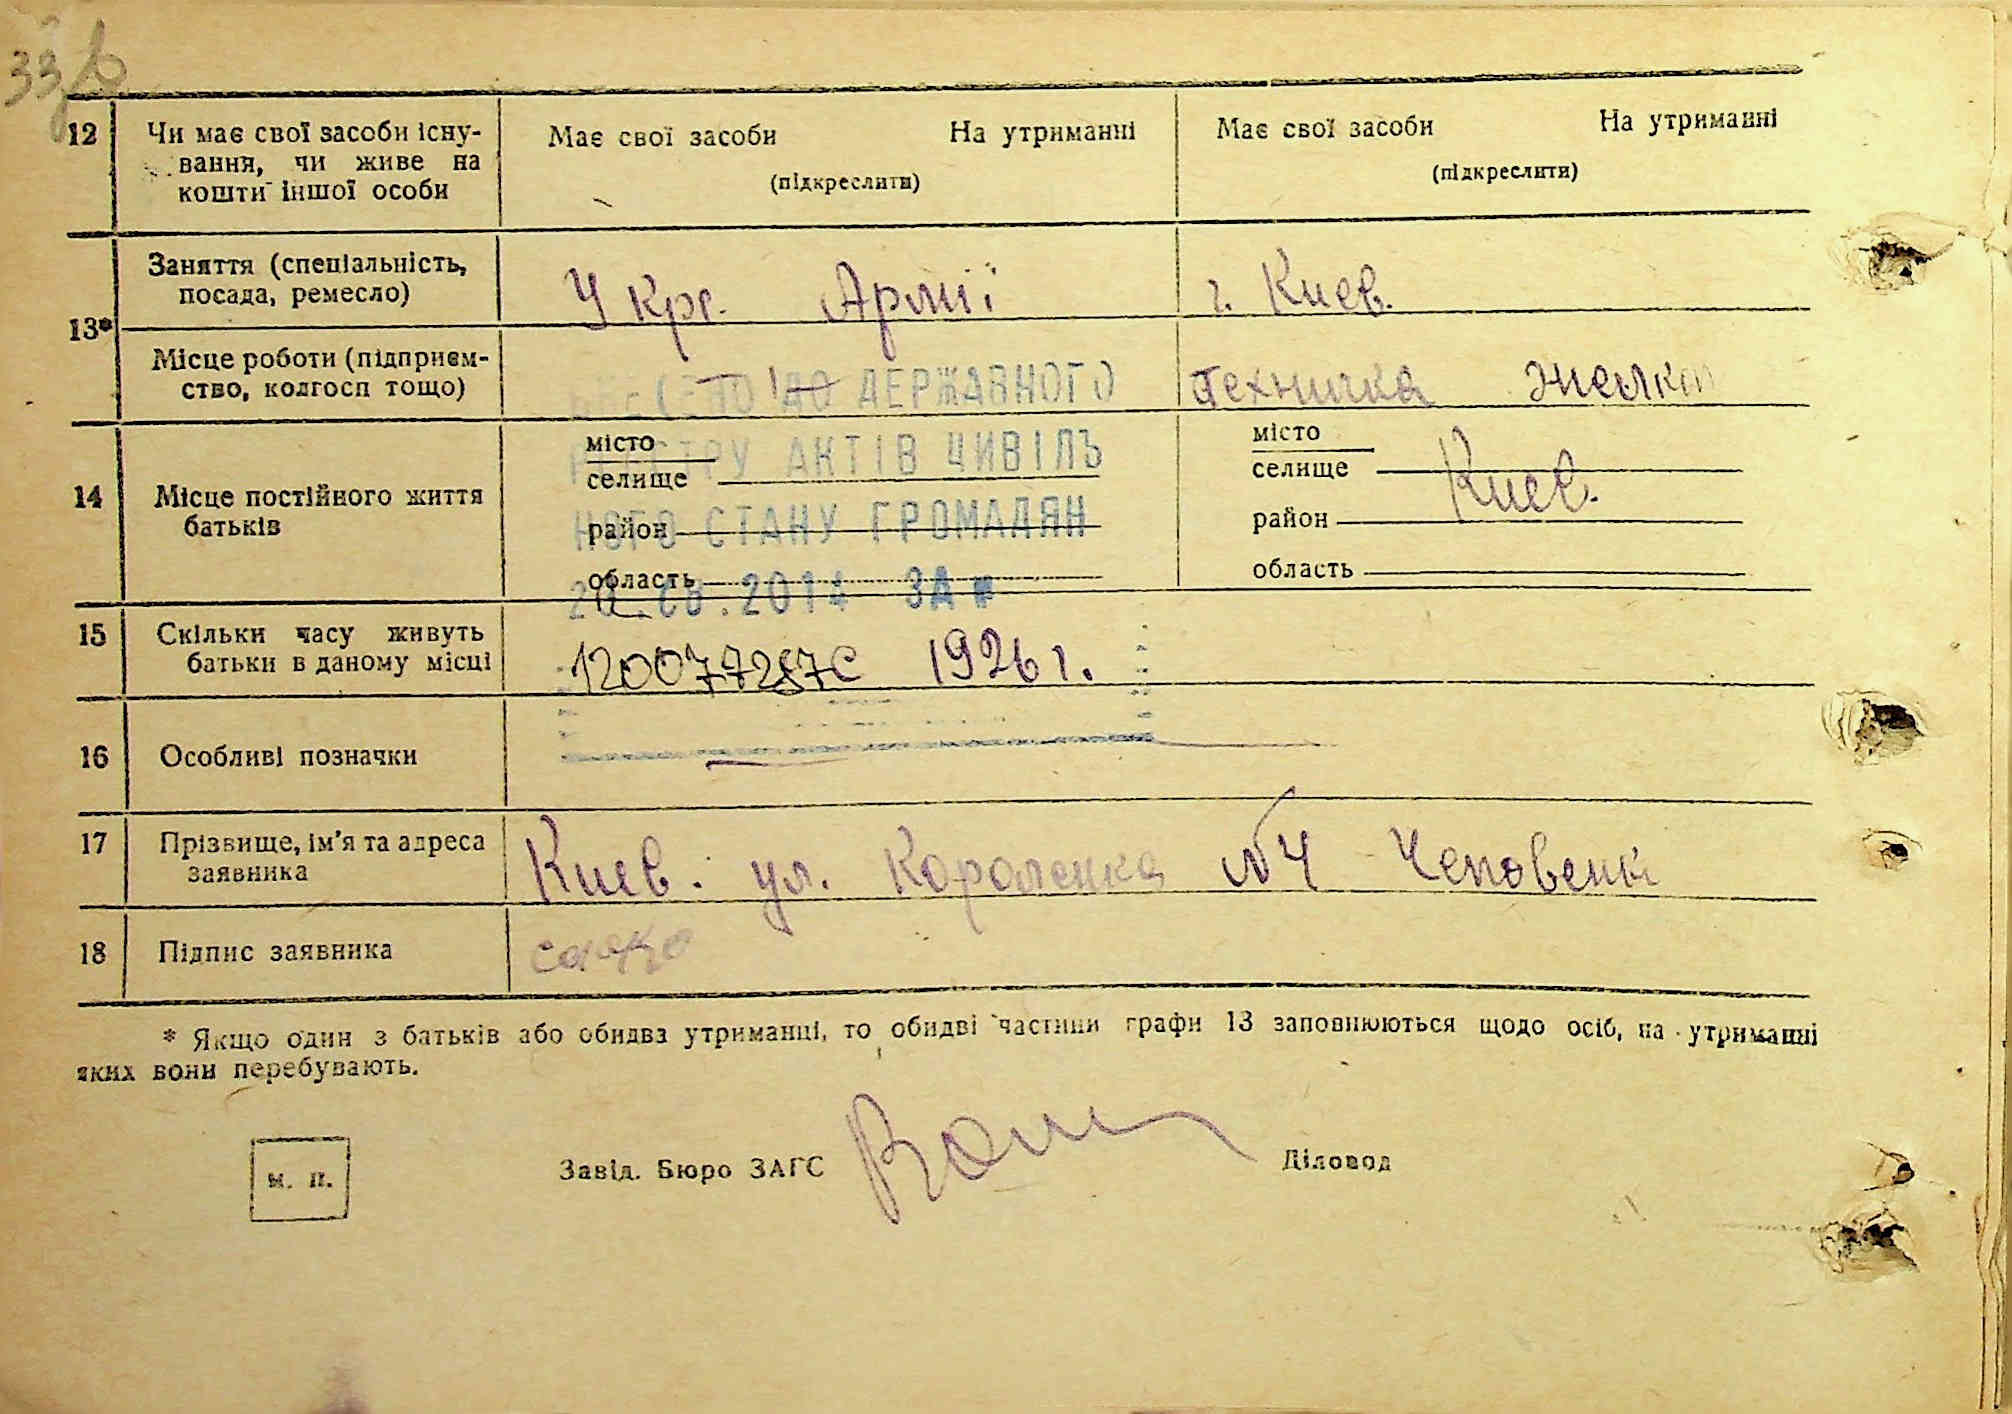 33
12 Чи має свої засоби існу- Має свої засоби На утриманні Має свої засоби На утриманні
вання, чи живе на (підкреслити) (підкреслити)
кошти іншої особи
13* Заняття (спеціальність, У Крс. Армії г. Киев.
посада, ремесло)
Місце роботи (підприєм- ДО ДЕРЖАВНОГО техничка
ство, колгосп тощо)
14 Місце постійного життя місто місто
батьків РЕЄСТРУ АКТІВ ЦИВІЛЬ
селище селище Киев.
НОГО СТАНУ ГРОМАДЯН
район район
область область
2014 ЗА №
15 Скільки часу живуть 120077287 С 1926 г.
батьки в даному місці
16 Особливі позначки
17 Прізвище, ім'я та адреса Киев. ул. Короленка №4
заявника
18 Підпис заявника
* Якщо один з батьків або обидва утриманці, то обидві частини графи 13 заповнюються щодо осіб, на утриманні
яких вони перебувають.
м. п. Завід. Бюро ЗАГС Діловод